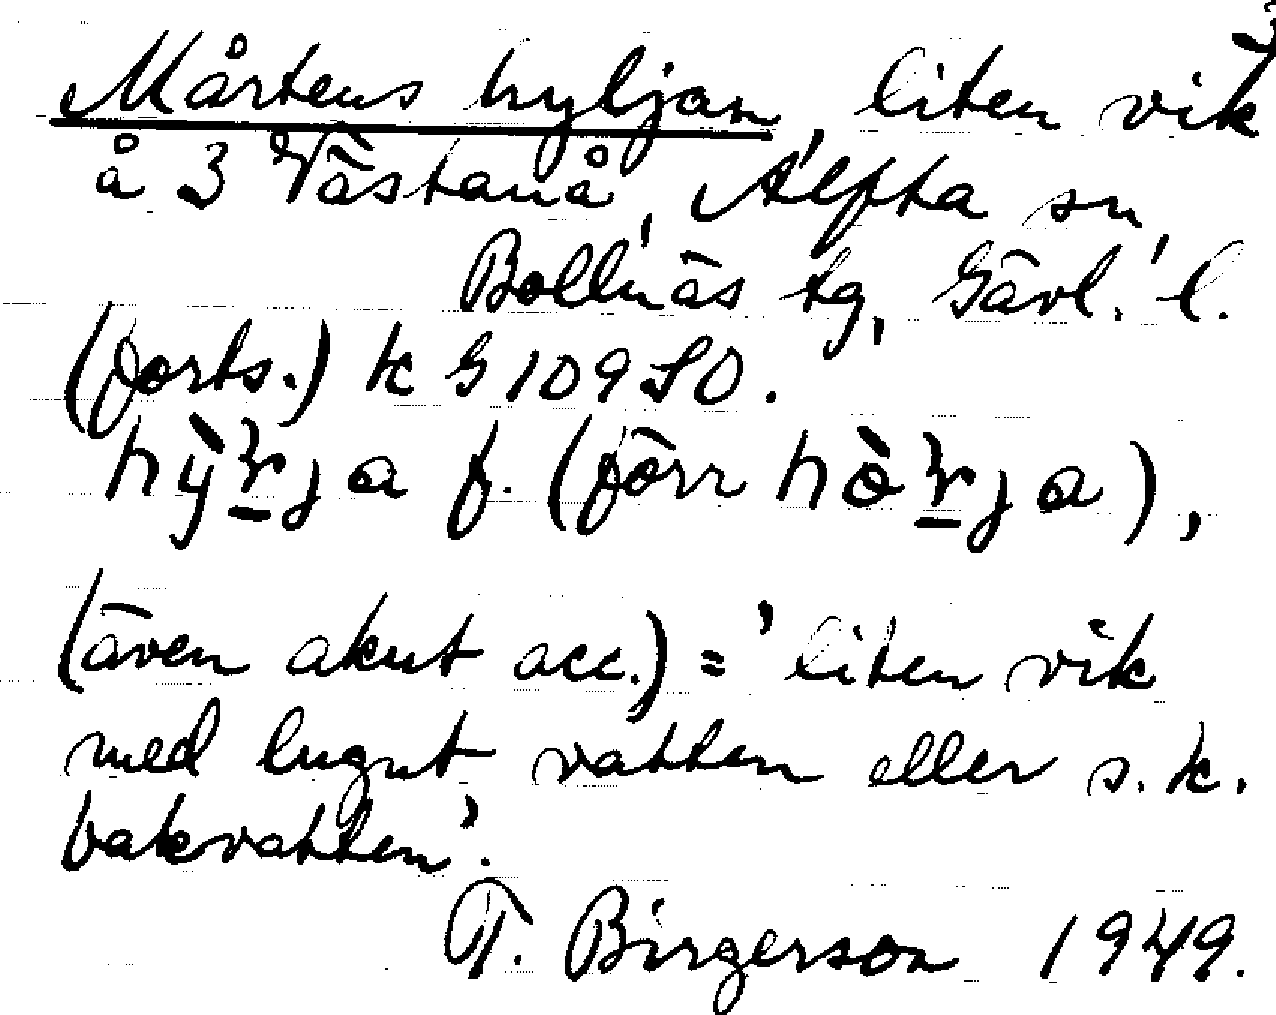 Mårtens hyljan, liten vik
å 3 Västanå, Alfta sn,
Bollnäs tg, Gävl. l.
(forts.) k G 109 SO.
hỳɽja f. (förr hò̀ɽja),
(även akut acc.) = 'liten vik
med lugnt vatten eller s.k.
bakvatten'.
T. Birgerson 1949.